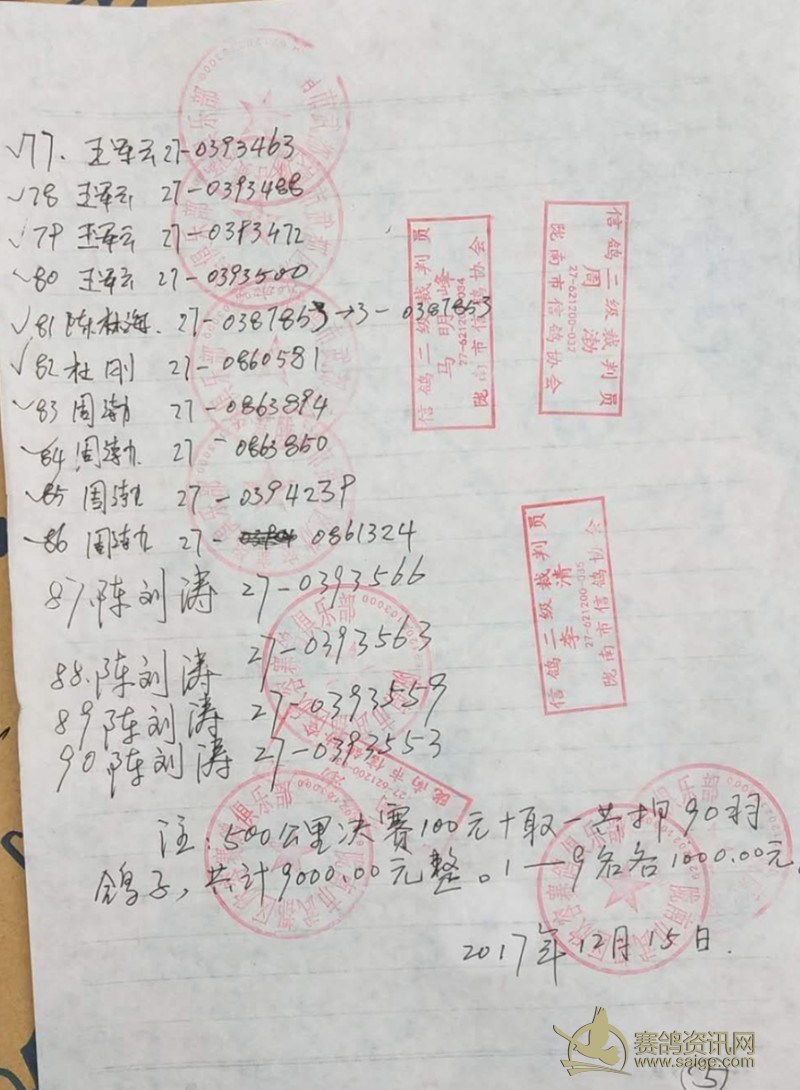 77. 王军云 27-0393463
78 王军云 27-0393488
79 王军云 27-0393472
80 王军云 27-0393500
81 陈林海. 27-0387853→3-0387853
82 杜刚 27-0860581
83 周渤 27-0863894
84 周渤 27-0863850
85 周渤 27-0394239
86 周渤 27- 0861324
87.陈刘涛 27-0393566
88.陈刘涛 27-0393563
89 陈刘涛 27-0393559
90 陈刘涛 27-0393553
注:500公里决赛100元十取一共押90羽
鸽子,共计9000.00元整。1—9名各1000.00元.
2017年12月15日.
信鸽二级裁判员
马明峰
陇南市信鸽协会
信鸽二级裁判员
周渤
27-621200-037
陇南市信鸽协会
信鸽二级裁判员
李清
27-621200-035
陇南市信鸽协会
赛鸽资讯网
www.saige.com
5